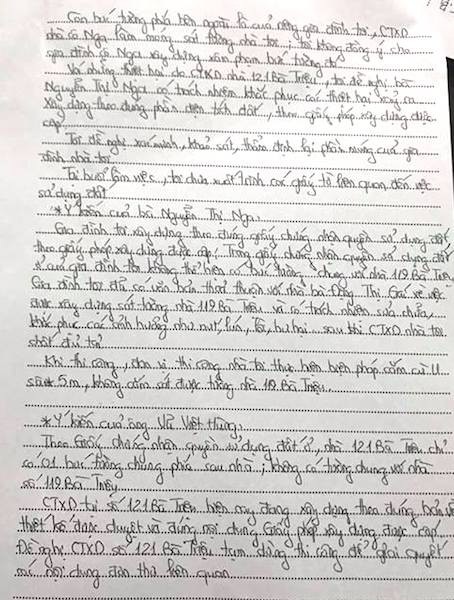 Còn bức tường phía bên ngoài là của riêng gia đình tôi, CTXD
nhà cô Nga làm móng sát tường nhà tôi; tôi không đồng ý cho
gia đình cô Nga xây dựng xâm phạm bức tường đó
Về những thiệt hại do CTXD nhà 121 Bà Triệu, tôi đề nghị bà
Nguyễn Thị Nga có trách nhiệm khắc phục các thiệt hại xảy ra
Xây dựng theo đúng phần diện tích đất, theo giấy phép xây dựng được
cấp
Tôi đề nghị xác minh, khảo sát, thẩm định lại phần móng của gia
đình nhà tôi
Tại buổi làm việc, tôi chưa xuất trình các giấy tờ liên quan đến việc
sử dụng đất
* Ý kiến của bà Nguyễn Thị Nga:
Gia đình tôi xây dựng theo đúng giấy chứng nhận quyền sử dụng đất
theo giấy phép xây dựng được cấp; Trong giấy chứng nhận quyền sử dụng đất
ở của gia đình tôi không thể hiện có bức tường chung với nhà 119 Bà Triệu
Gia đình tôi đã có văn bản thoả thuận với nhà bà Đặng Thị về việc
được xây dựng sát tường nhà 119 Bà Triệu và có trách nhiệm sửa chữa,
khắc phục các ảnh hưởng như nứt, lún, hư hại sau khi CTXD nhà tôi
Khi thi công, đơn vị thi công nhà tôi thực hiện biện pháp cắm cừ U
5m, không cắm sát được tường nhà 119 Bà Triệu
* Ý kiến của ông Vũ Việt Hùng:
Theo Giấy chứng nhận quyền sử dụng đất ở, nhà 121 Bà Triệu chỉ
có 01 bức tường chung phía sau nhà; không có tường chung với nhà
số 119 Bà Triệu
CTXD tại số 121 Bà Triệu hiện nay đang xây dựng theo đúng bản vẽ
thiết kế được duyệt và đúng nội dung Giấy phép xây dựng được cấp
Đề nghị CTXD số 121 Bà Triệu tạm dừng thi công để giải quyết
các nội dung đơn thư liên quan